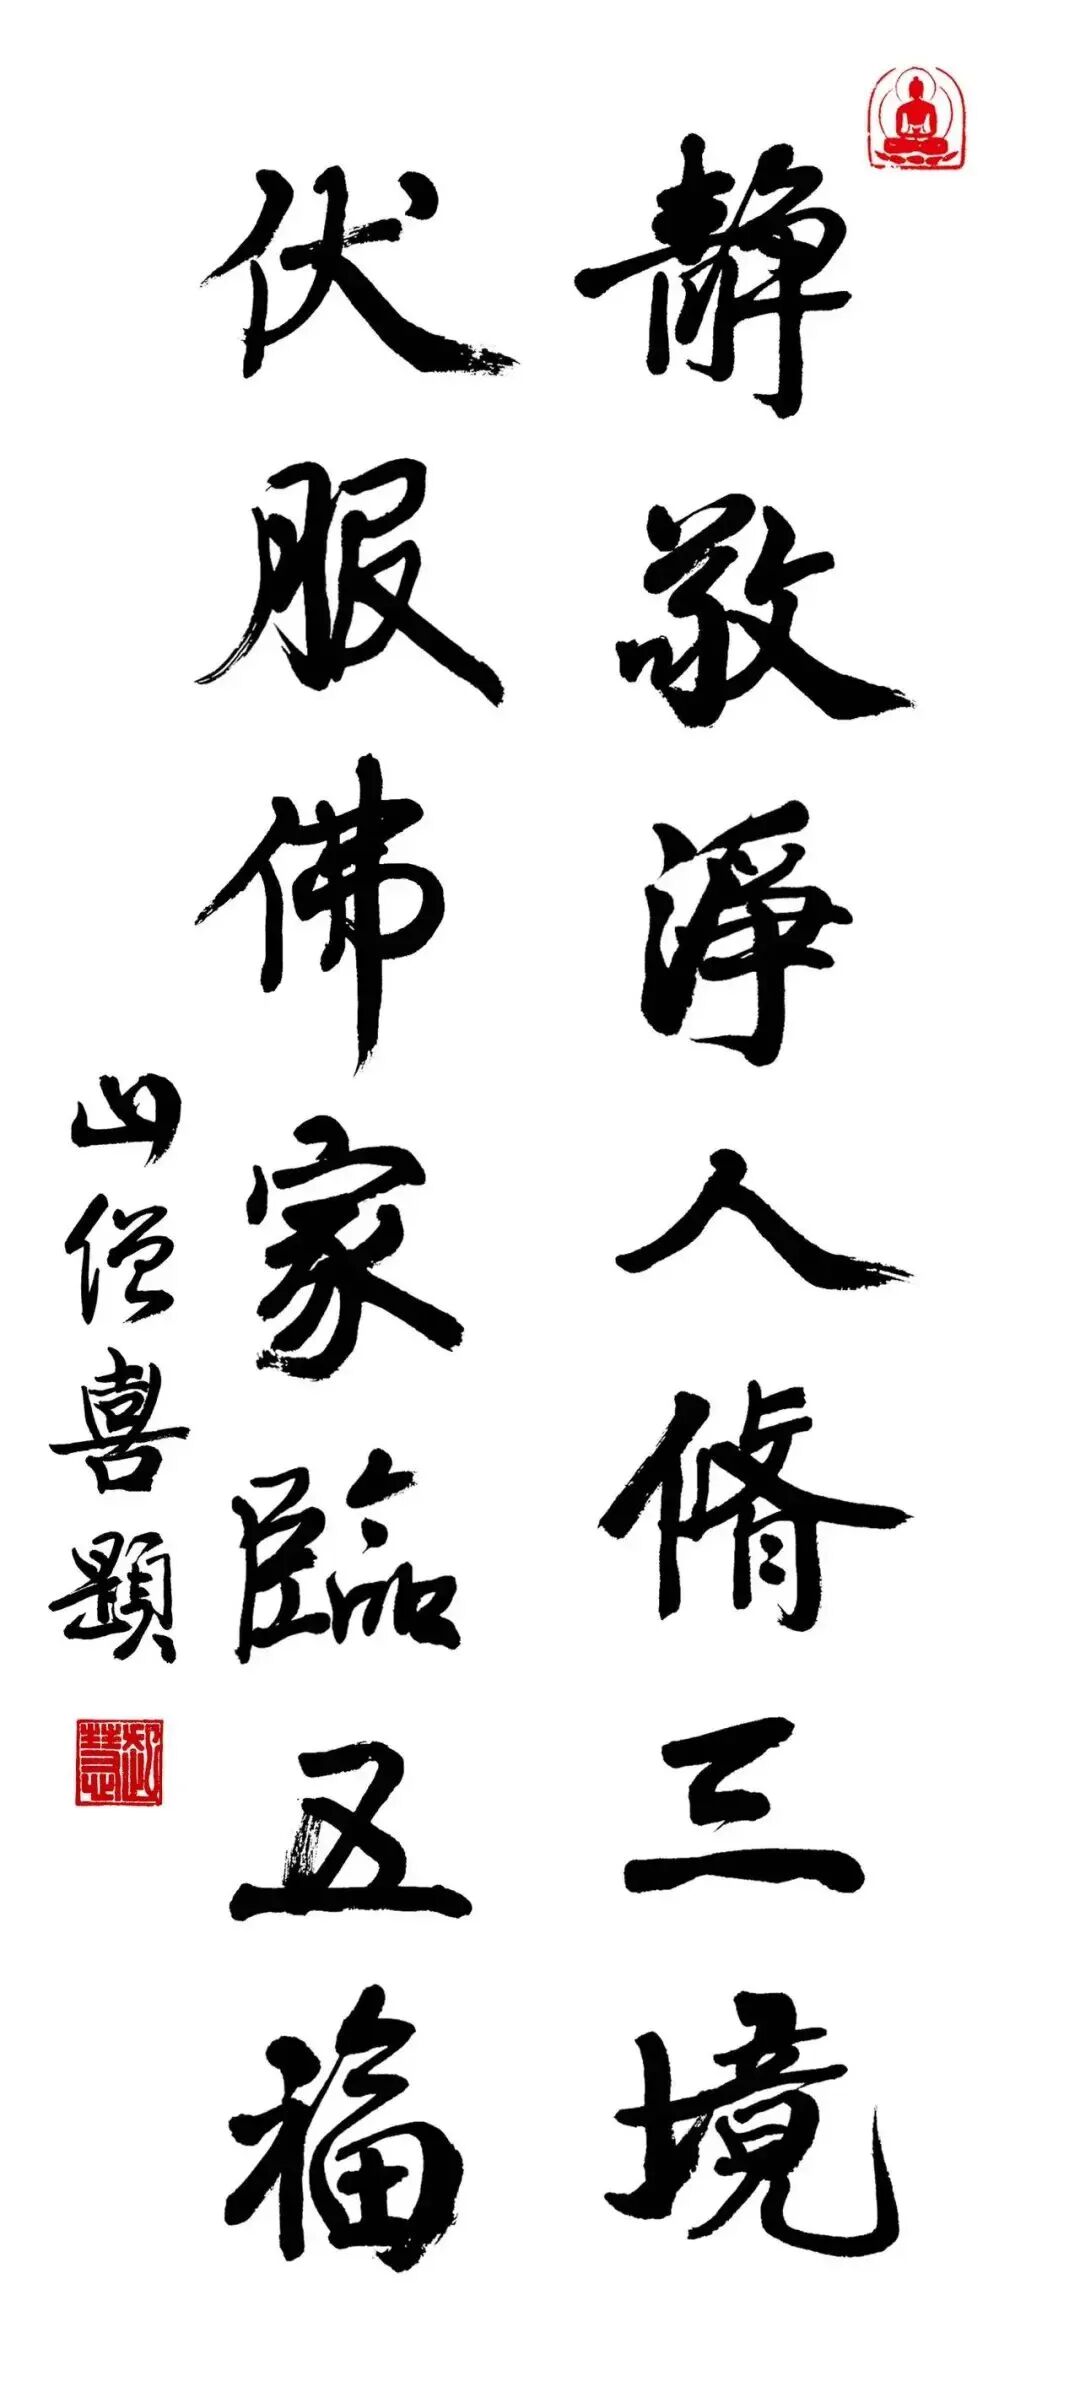 靜敬淨人脩三境
伏服佛家臨五福
山僧喜題